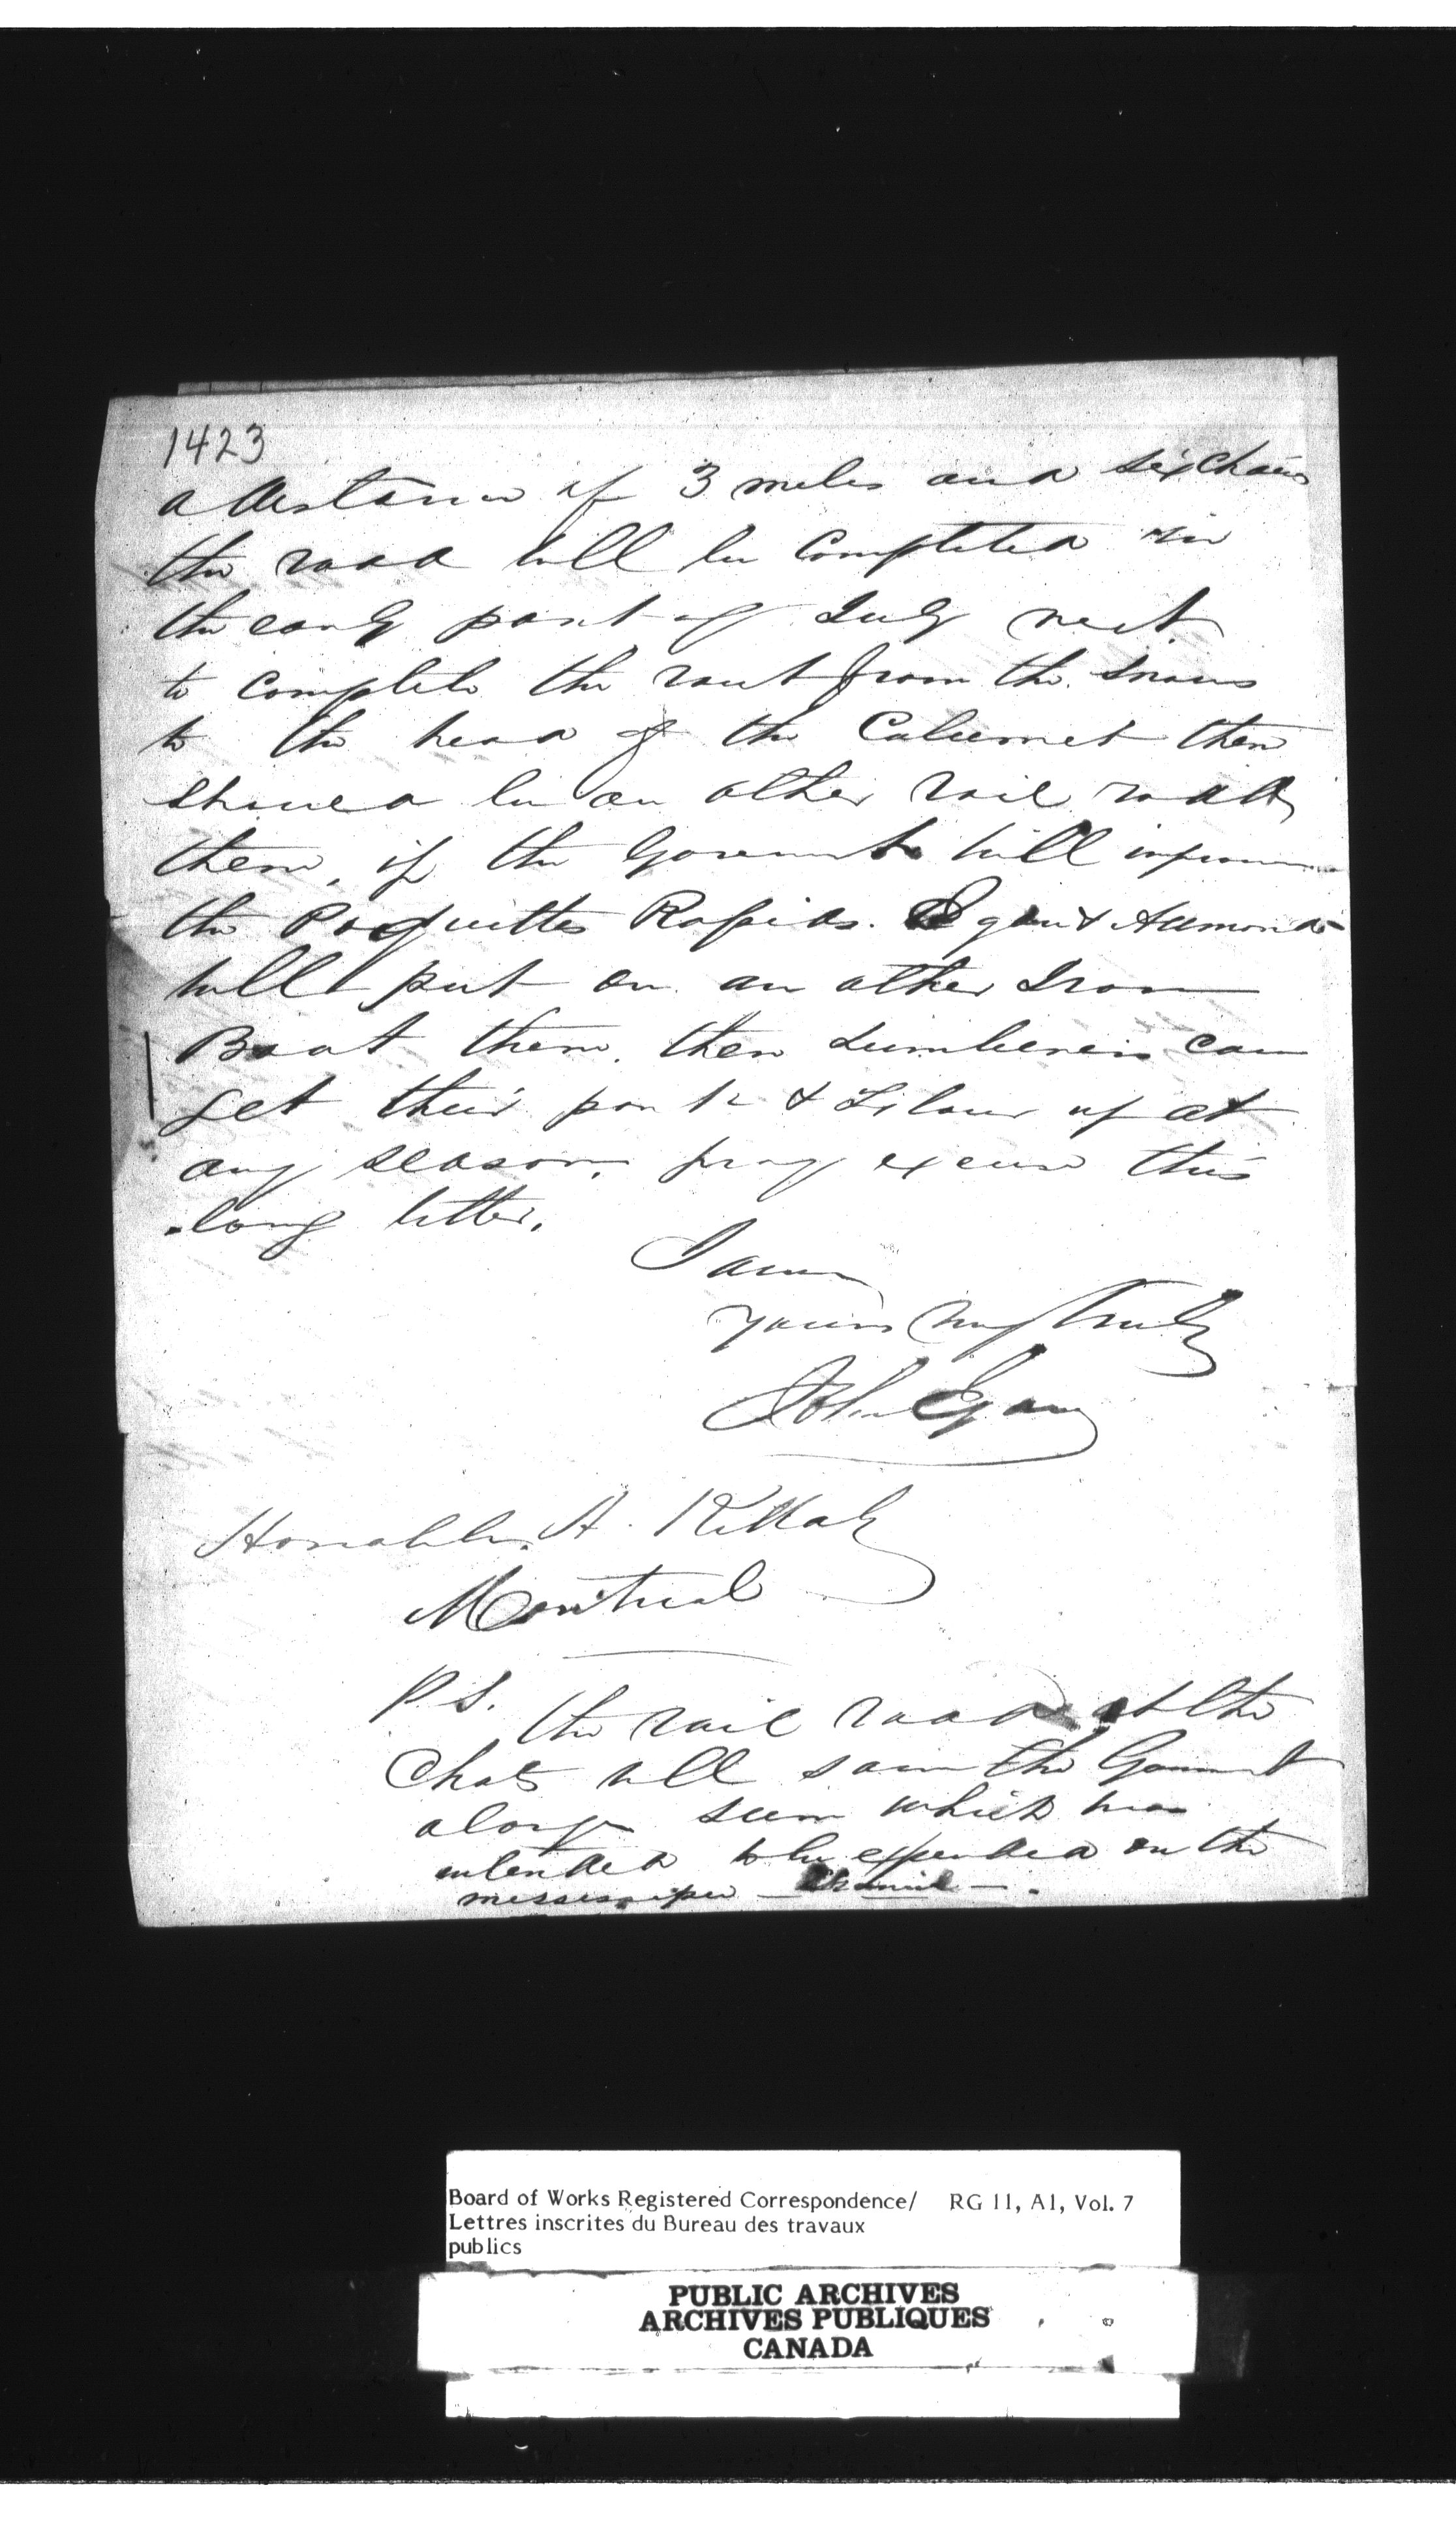 1423
a distance of 3 miles and six chains
the road will be Completed in
the early part of July next
to complete the rout from the Snows
to the head of the Calumet then
should be an other rail road
there, if the Goverment will improve
the Paquittes Rapids. Egan & Aumond
will put on an other Iron
Boat there. then Lumberers can
get their pork & Flour up at
any season. pray excuse this
long letter.
I am
yours very truly
John Egan
Honable. H. Killaly
Montreal
P S.
the rail road at the
Chats will save the Goverment
a large sum which was
entended to be expended on the
mississippi
Board of Works Registered Correspondence/ RG 11, A1, Vol. 7
Lettres inscrites du Bureau des travaux
publics
PUBLIC ARCHIVES
ARCHIVES PUBLIQUES
CANADA